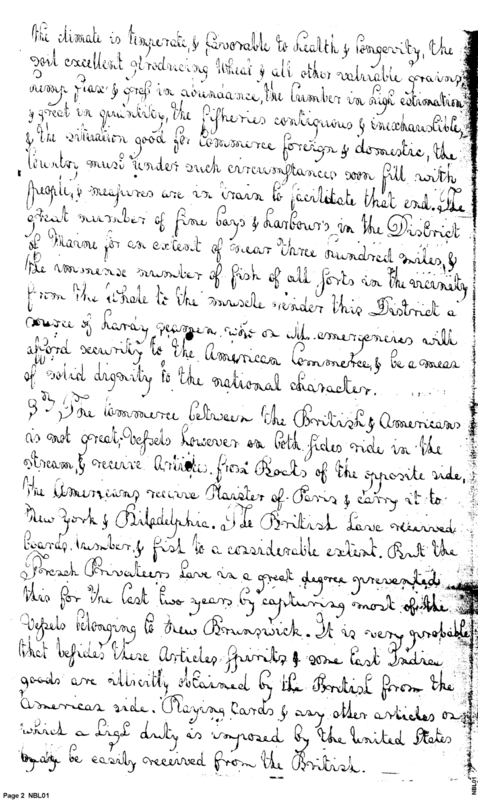 the climate is temperate, & favorable to health & longevity, the
soil excellent producing wheat & all other valuable grains,
hemp flax & grass in abundance, the lumber in high estimation
& great in quantity, the fisheries contiguous & inexhaustible,
& the situation good for commerce foreign & domestic, the
Country must under such circumstances soon fill with
people, & measures are in train to facilitate that end. The
great number of fine bays & harbours in the District
of Maine for an extent of near three hundred miles, &
the immense number of fish of all sorts in the vicinity
from the Whale to the muscle render this District a
source of hardy seamen, who on all emergencies will
afford security to the American Commerce, & be a mean
of solid dignity to the national character.
3dly The Commerce between the British & Americans
is not great, Vessels however on both sides ride in the
stream, & receive Articles from Boats of the opposite side,
the Americans receive Plaister of Paris & carry it to
New York & Philadelphia. The British have received
boards, lumber, & fish to a considerable extent. But the
French Privateers have in a great degree prevented
this for the last two years by capturing most of the
Vessels belonging to New Brunswick. It is very probable
that besides these Articles spirits & some East Indian
goods are illicitly obtained by the British from the
American side. Playing Cards & any other articles on
which a high duty is imposed by the United States
may be easily received from the British.
Page 2 NBL01
NBL01